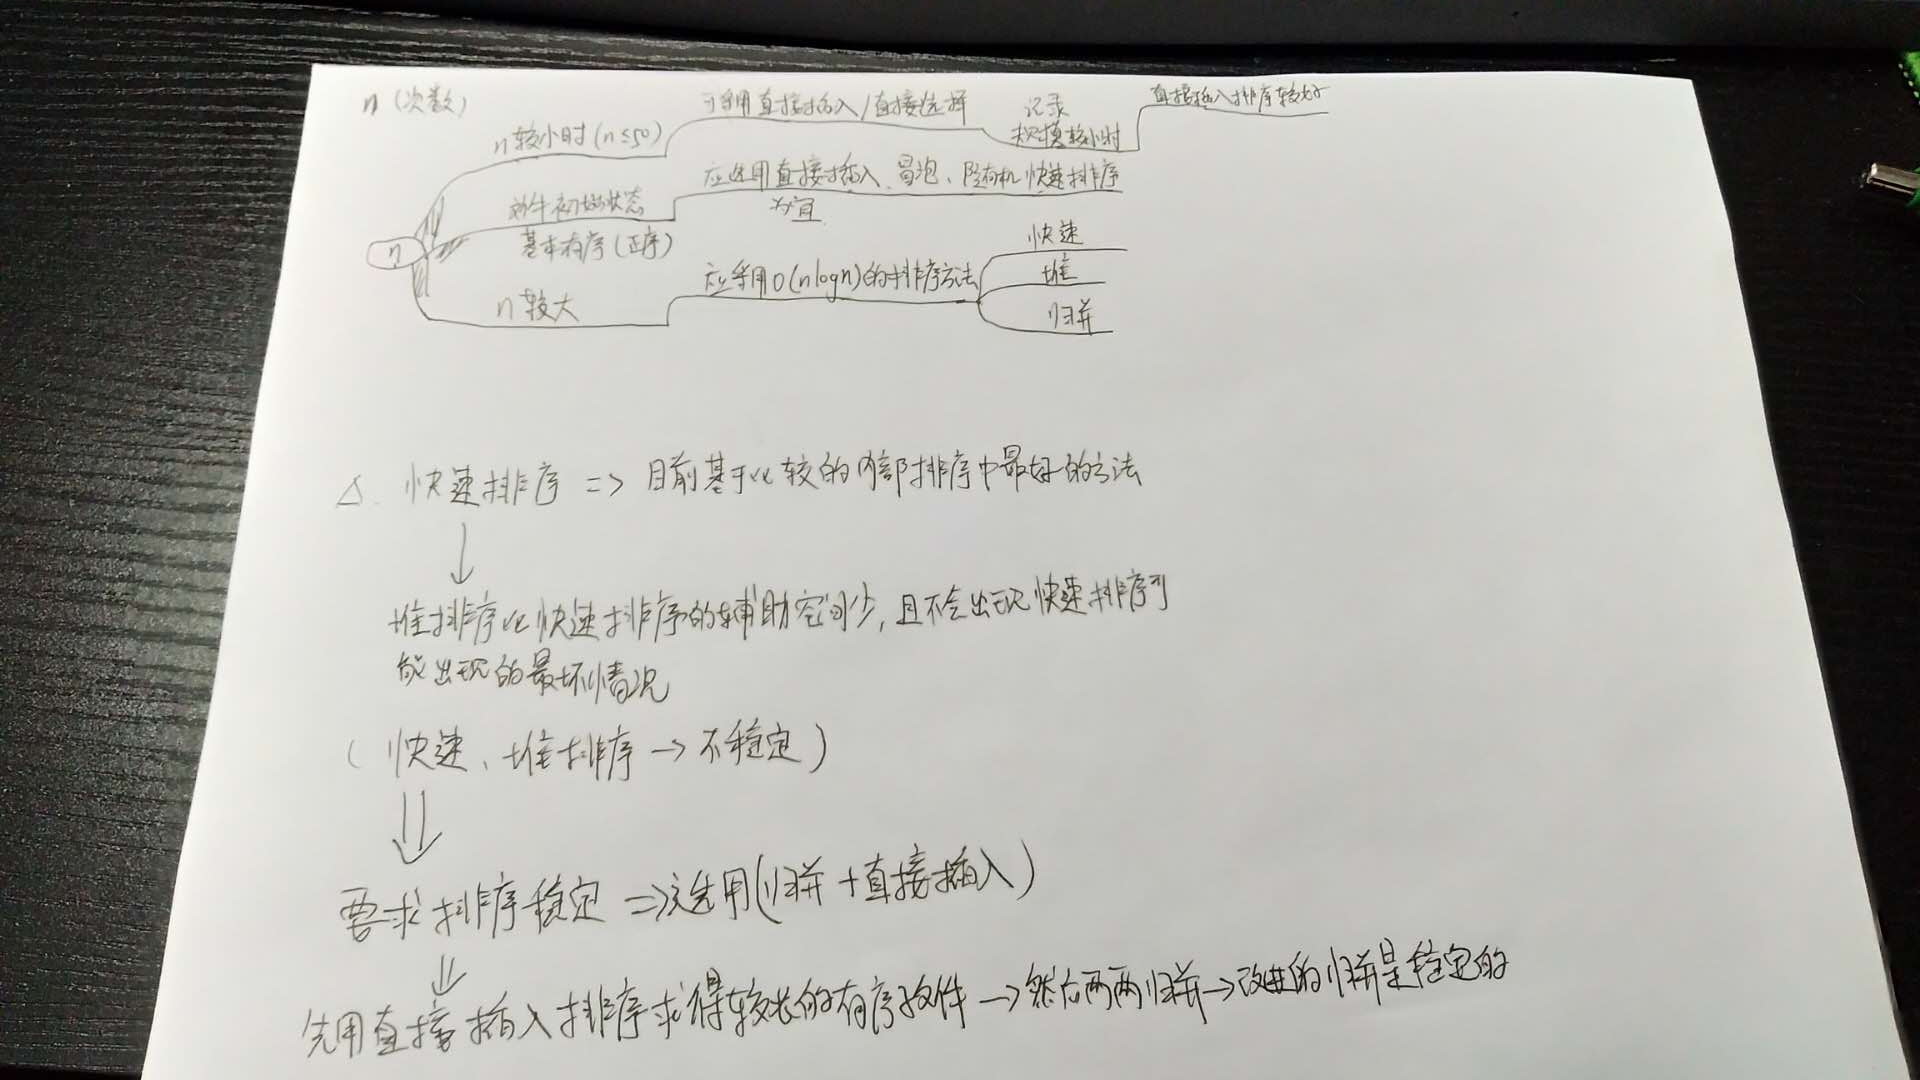 n（次数）
n较小时（n≤50）
可采用直接插入/直接选择
记录
规模较小时
直接插入排序较好
文件初始状态
基本有序（正序）
应选用直接插入、冒泡、随机快速排序
为宜
n
n较大
应采用O(nlogn)的排序方法
快速
堆
归并
△. 快速排序 => 目前基于比较的内部排序中最好的方法
↓
堆排序比快速排序的辅助空间少，且不会出现快速排序可
能出现的最坏情况
（快速、堆排序 → 不稳定）
⇓
要求排序稳定 => 选用（归并+直接插入）
⇓
先用直接插入排序求得较长的有序文件 → 然后两两归并 → 改进的归并是稳定的